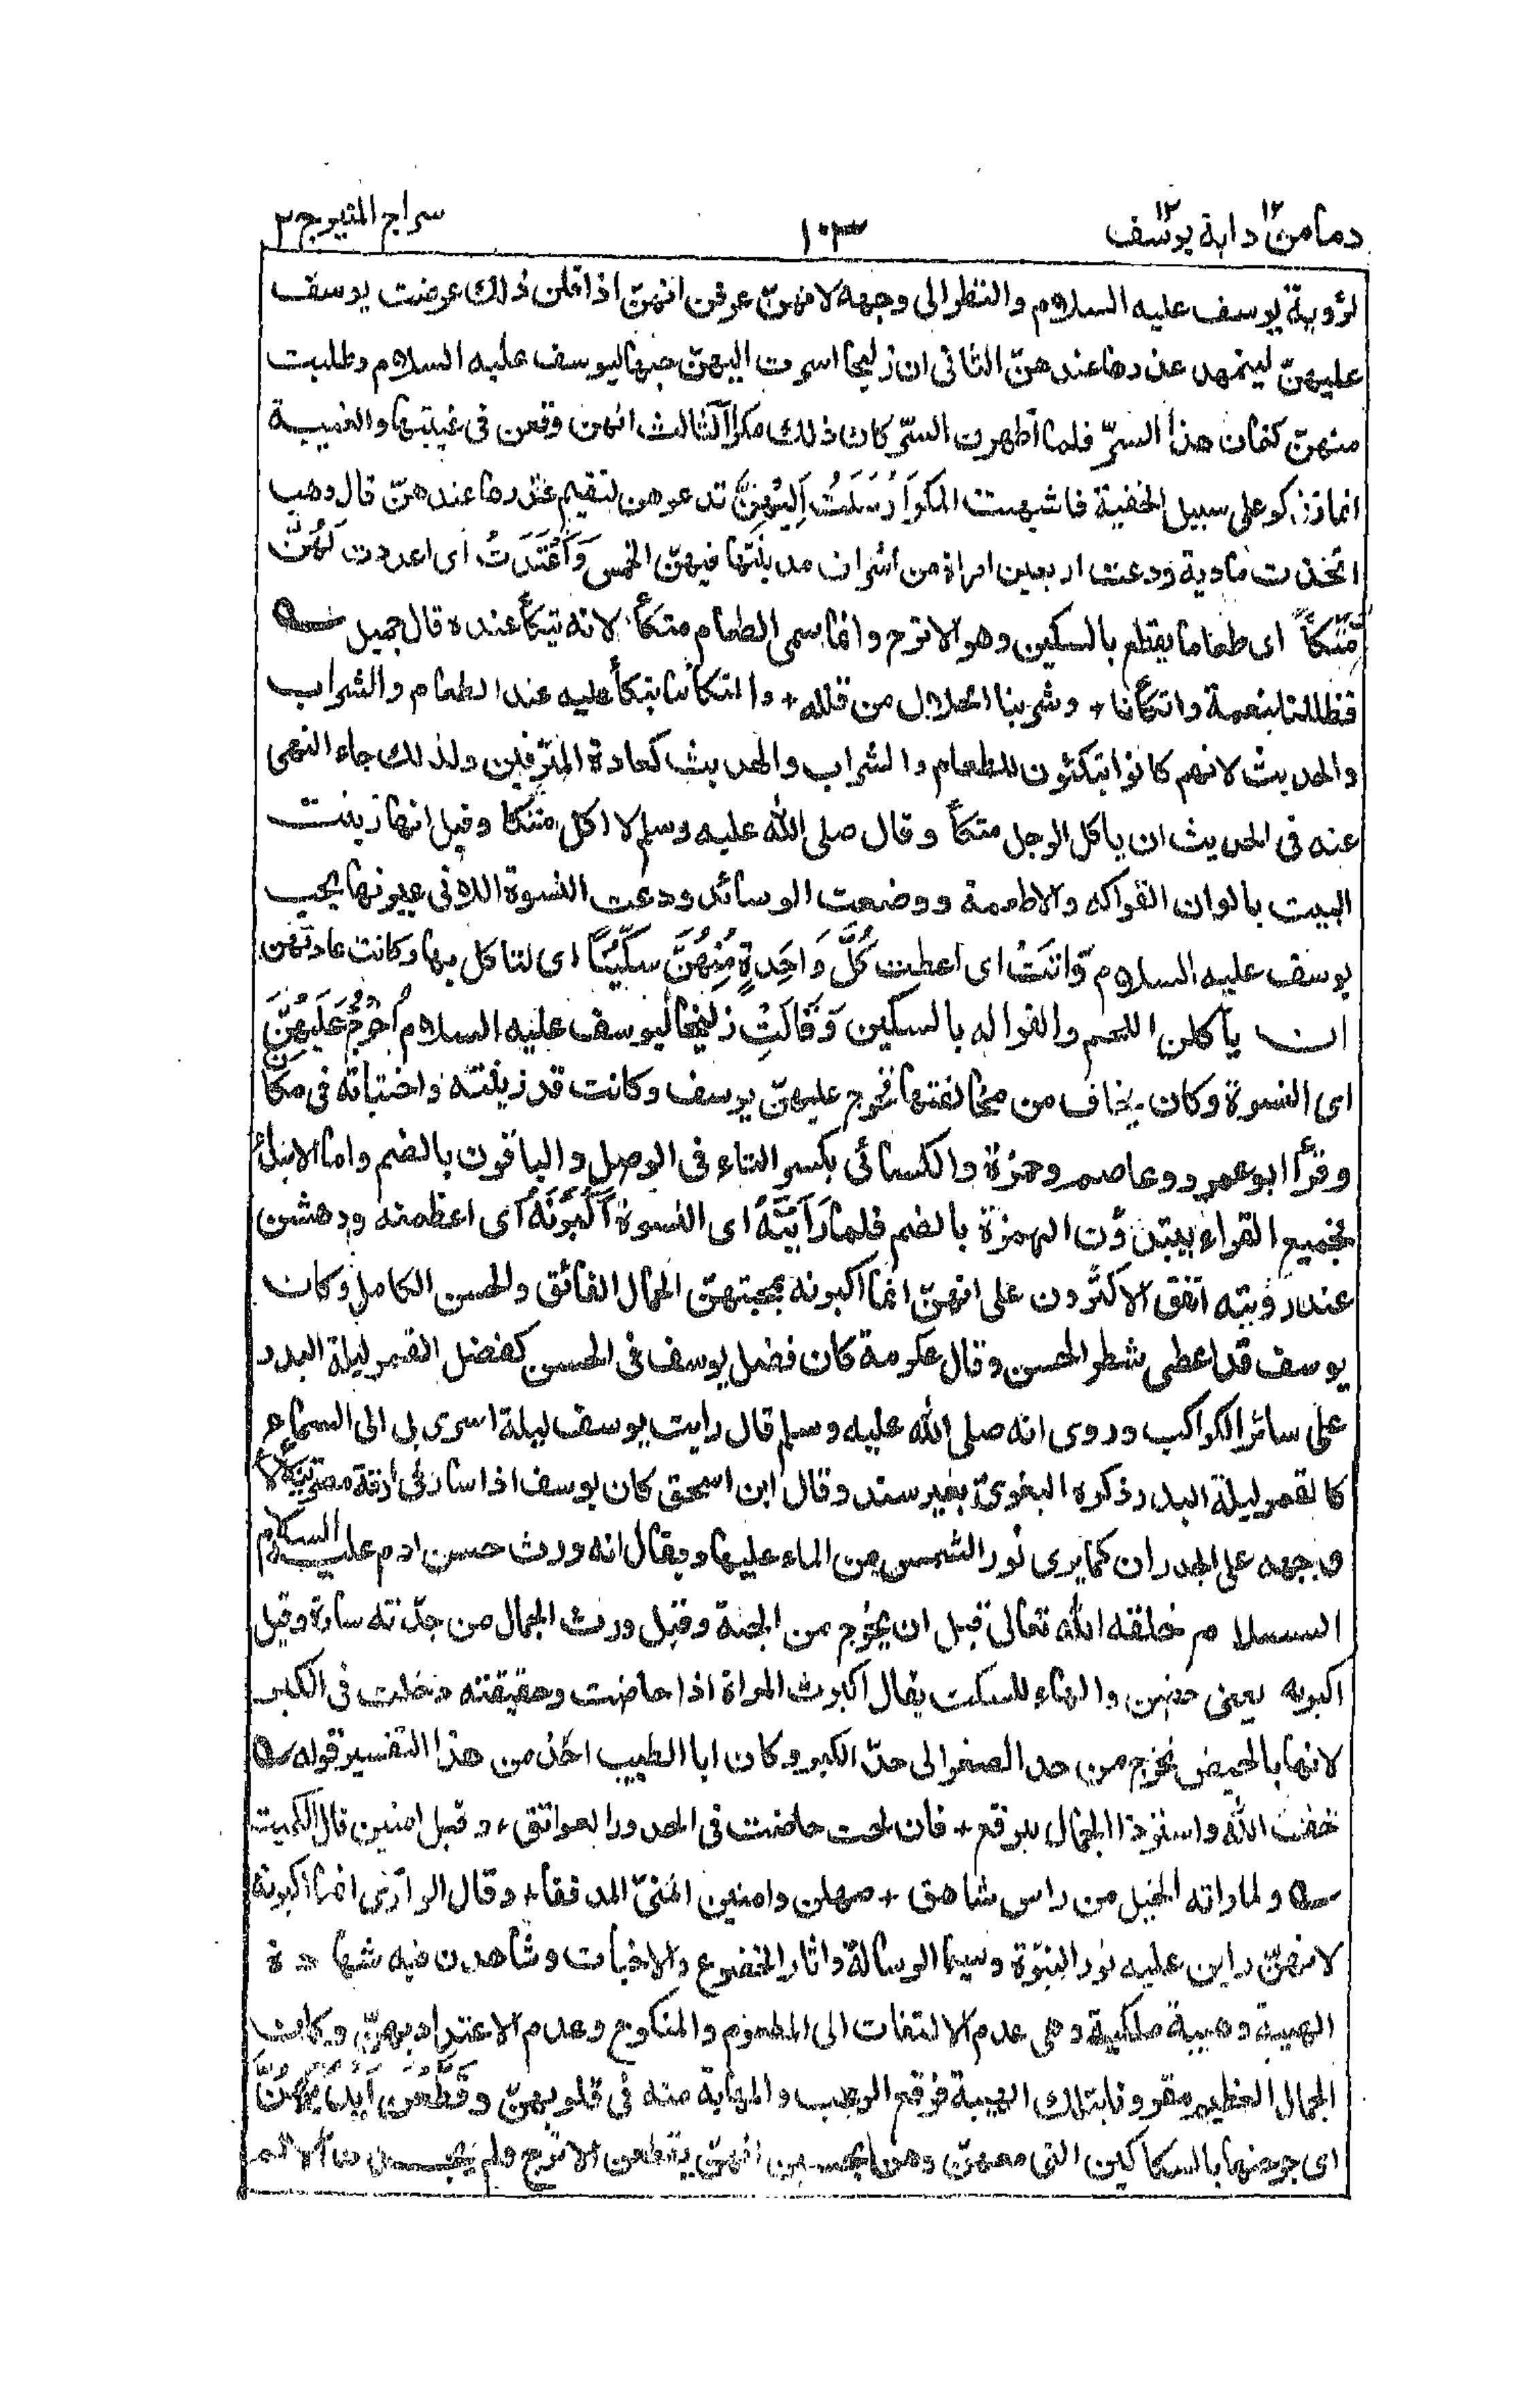 سراج المنير ج ٢
١٠٣
ومامن دابة ١٢ يوسف ١٢
لرؤية يوسف عليه السلام والنظر الى وجهه لانهنّ عرفن انهنّ اذا قلن ذلك عرضت يوسف
عليهنّ ليتمهد عذرها عندهنّ الثانى ان زليخا اسرت اليهنّ حبها ليوسف عليه السلام وطلبت
منهنّ كتمان هذا السرّ فلما اظهرن السرّ كان ذلك مكرا الثالث انهن وقعن فى غيبتها والغيبة
انما تذكر على سبيل الخفية فاشبهت المكر اَرْسَلَتْ اِلَيْهِنَّ تدعوهن لتقيم عذرها عندهنّ قال وهب
اتخذت مادبة ودعت اربعين امراة من اشراف مدينتها فيهنّ الخمس وَاَعْتَدَتْ اى اعددت لَهُنَّ
مُتَّكَأً اى طعاما يقطع بالسكين وهو الاترج وانما سمى الطعام متكأ لانه يتكأ عنده قال جميل
فظللنا بنعمة واتكأنا + وشربنا الحلال من قلله + والمتكأ ما يتكأ عليه عند الطعام والشراب
والحديث لانهم كانوا يتكئون للطعام والشراب والحديث كعادة المترفين ولذلك جاء النهى
عنه فى الحديث ان ياكل الرجل متكأ وقال صلى الله عليه وسلم لا اكل متكئا وقيل انها زينت
البيت بالوان الفواكه والاطعمة ووضعت الوسائد ودعت النسوة اللاتى عيرنها بحب
يوسف عليه السلام وَّاٰتَتْ اى اعطت كُلَّ وَاحِدَةٍ مِّنْهُنَّ سِكِّيْنًا اى لتاكل بها وكانت عادتهن
ان ياكلن اللحم والفواكه بالسكين وَّقَالَتِ زليخا ليوسف عليه السلام اخْرُجْ عَلَيْهِنَّ
اى النسوة وكان يخاف من مخالفتها فخرج عليهنّ يوسف وكانت قد زينته واختباته فى مكان
وقرأ ابو عمرو وعاصم وحمزة والكسائى بكسر التاء فى الوصل والباقون بالضم واما الابتداء
فجميع القراء يبتدؤن الهمزة بالضم فلما رَاَيْنَهٗ اى النسوة اَكْبَرْنَهٗ اى اعظمنه ودهشن
عند رؤيته اتفق الاكثرون على انهنّ انما اكبرنه بحبتهنّ الجمال الفائق والحسن الكامل وكان
يوسف قد اعطى شطر الحسن وقال عكرمة كان فضل يوسف فى الحسن كفضل القمر ليلة البدر
على سائر الكواكب وروى انه صلى الله عليه وسلم قال رايت يوسف ليلة اسرى بى الى السماء
كالقمر ليلة البدر ذكره البغوى بغير سند وقال ابن اسحق كان يوسف اذا سار فى ازقة مصر
وجهه على الجدران كما يرى نور الشمس من الماء عليها ويقال انه ورث حسن ادم عليه السلام
السلام خلقه الله تعالى قبل ان يخرج من الجنة وقيل ورث الجمال من جدّته سارة وقيل
اكبرنه يعنى حضن والهاء للسكت يقال اكبرت المراة اذا حاضت وحقيقته دخلت فى الكبر
لانها بالحيض تخرج من حد الصغر الى حدّ الكبر وكان ابا الطيب اخذ من هذا التفسير قوله
خف الله واستر ذا الجمال ببرقع + فان لحت حاضت فى الخدور العواتق + وقيل امنين قال الكميت
ولما راته الخيل من راس شاهق + صهلن وامنين المنىّ المدفقا + وقال الرازى انما اكبرنه
لانهنّ راين عليه نور النبوّة وسيما الرسالة واثار الخضوع والاخبات وشاهدن فيه شهادة
الهيبة وهيبة ملكية وهى عدم الالتفات الى المطعوم والمنكوح وعدم الاعتداد بهنّ وكان
الجمال العظيم مقرونا بتلك الهيبة فوقع الرعب والمهابة منه فى قلوبهنّ وَقَطَّعْنَ اَيْدِيَهُنَّ
اى جرحنها بالسكاكين التى معهنّ وهن يحسبن انهنّ يقطعن الاترج ولم يجدن الالم